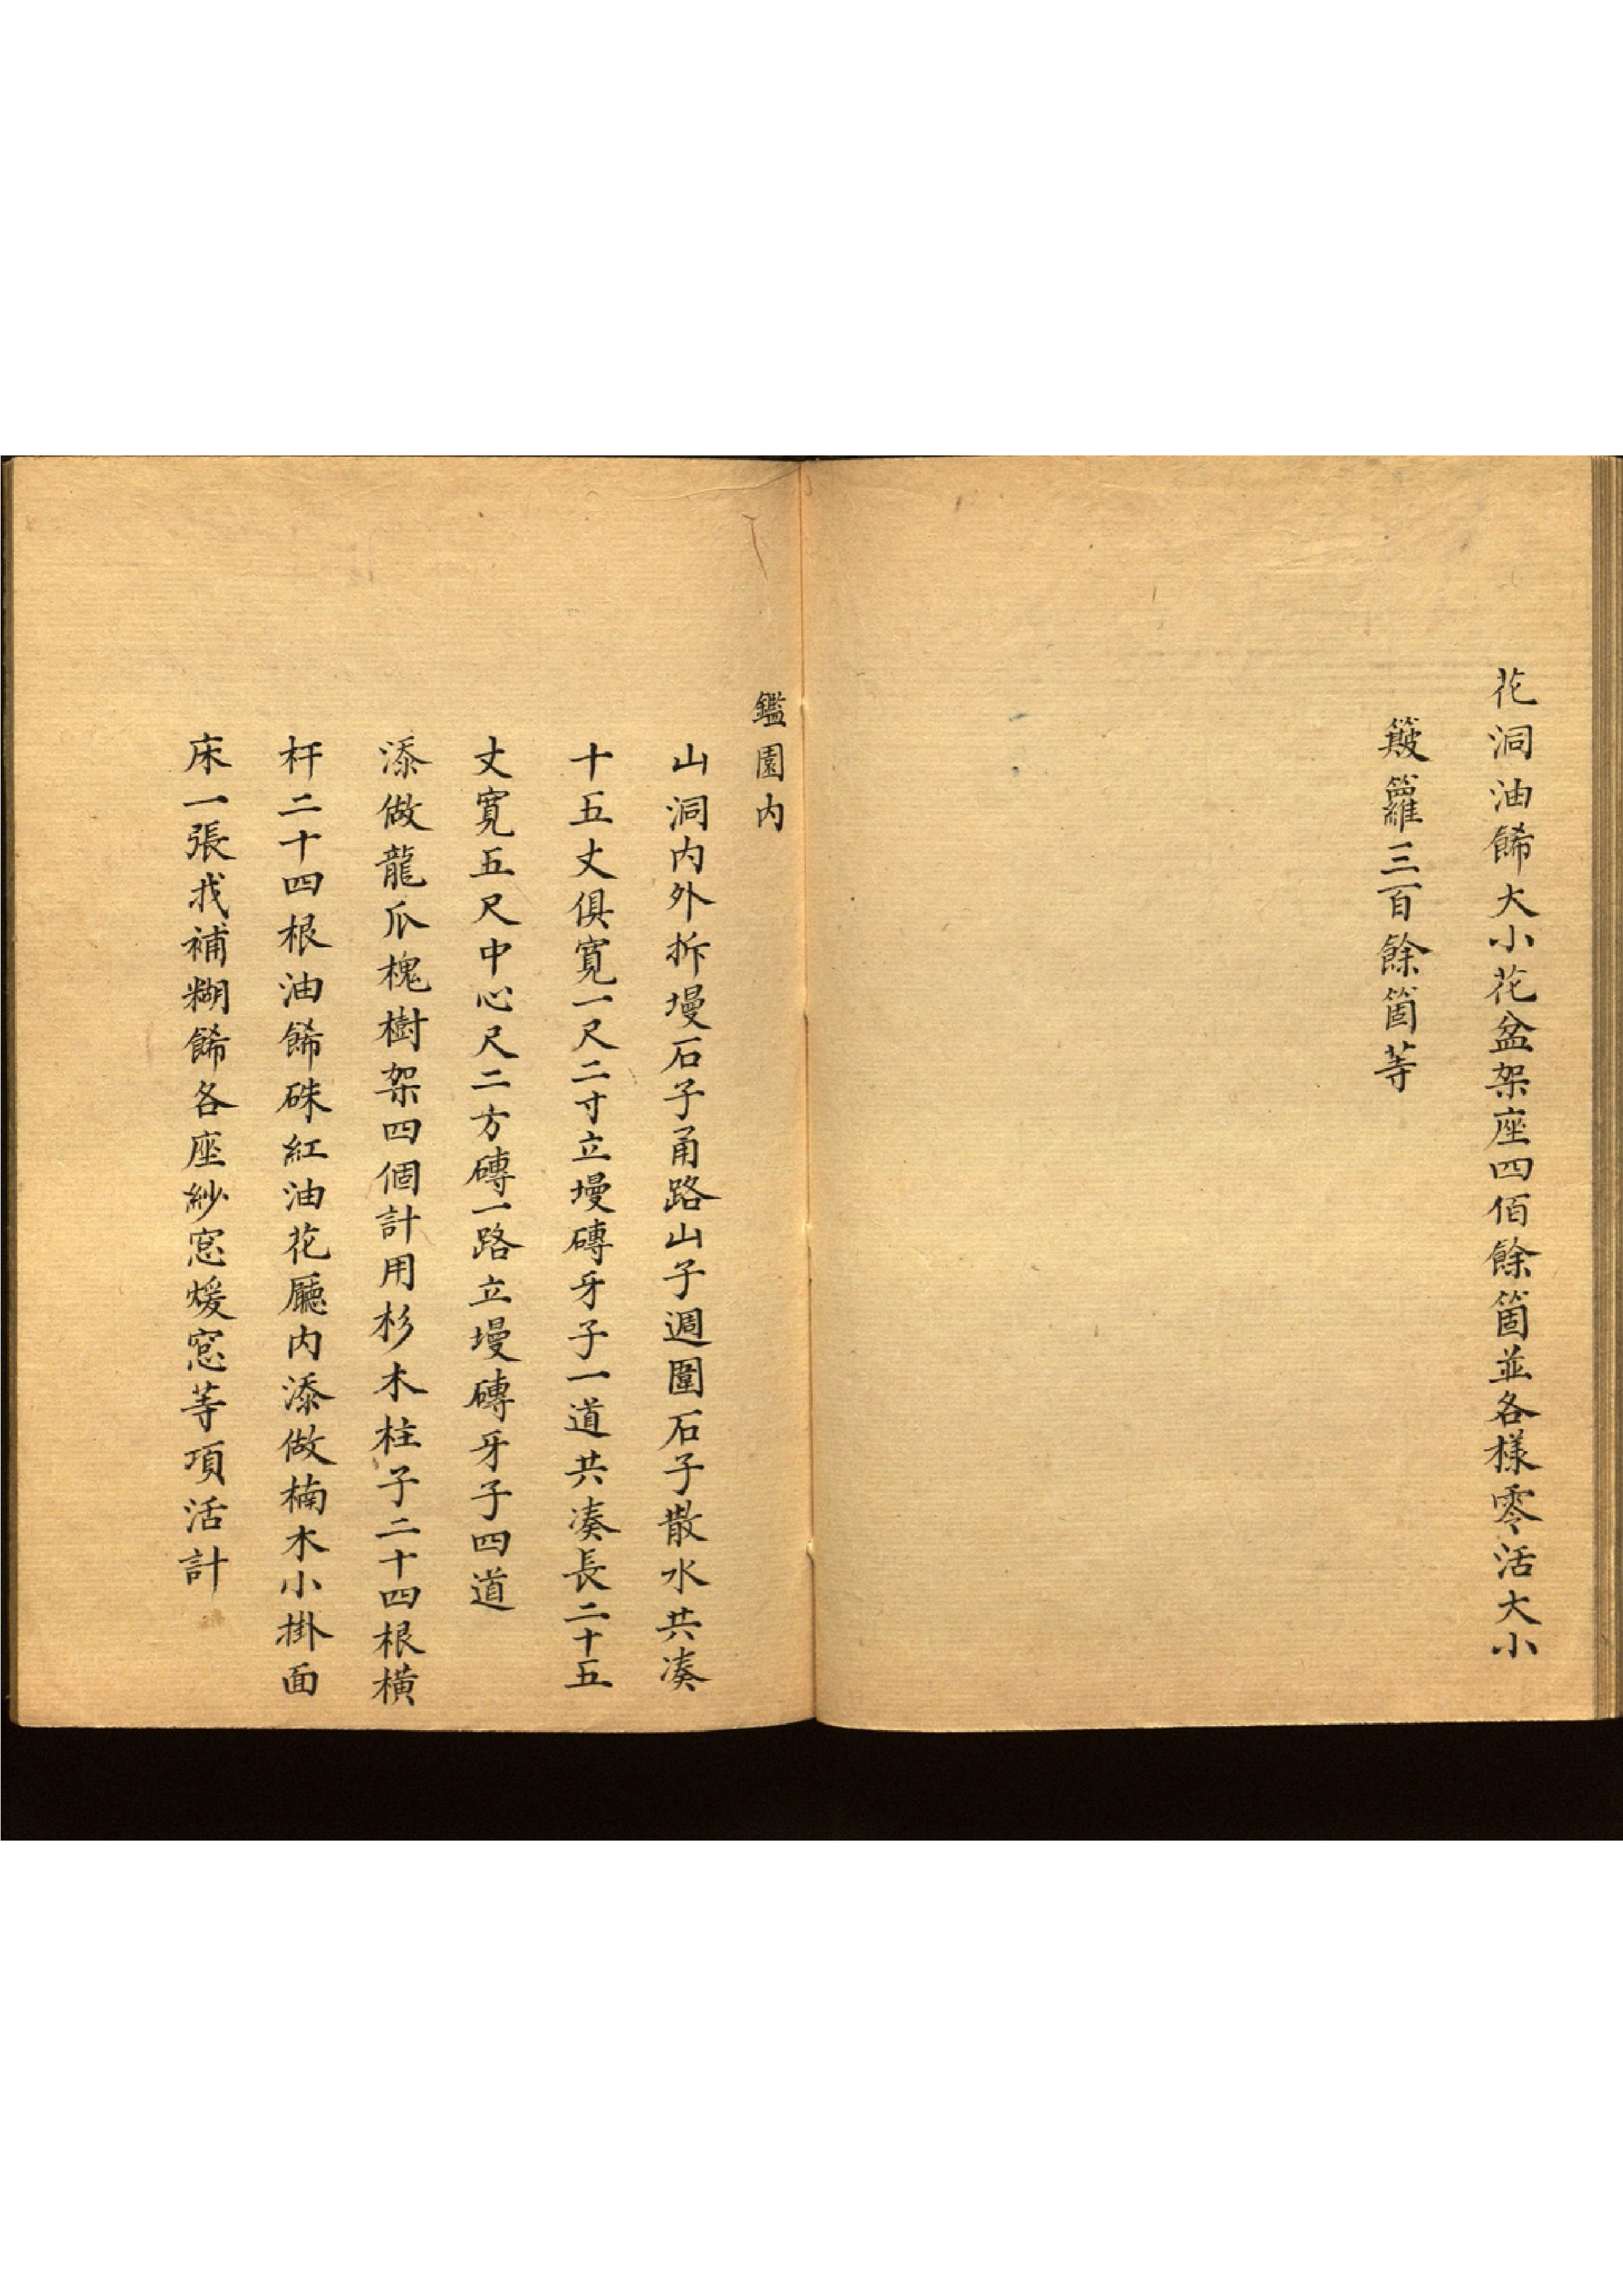 花洞油餙大小花盆架座四佰餘箇並各樣零活大小
簸籮三百餘箇等
鑑園內
山洞內外拆墁石子甬路山子週圍石子散水共湊
十五丈俱寬一尺二寸立墁磚牙子一道共湊長二十五
丈寬五尺中心尺二方磚一路立墁磚牙子四道
添做龍爪槐樹架四個計用杉木柱子二十四根橫
杆二十四根油餙硃紅油花廳內添做楠木小掛面
床一張找補糊餙各座紗窓煖窓等項活計